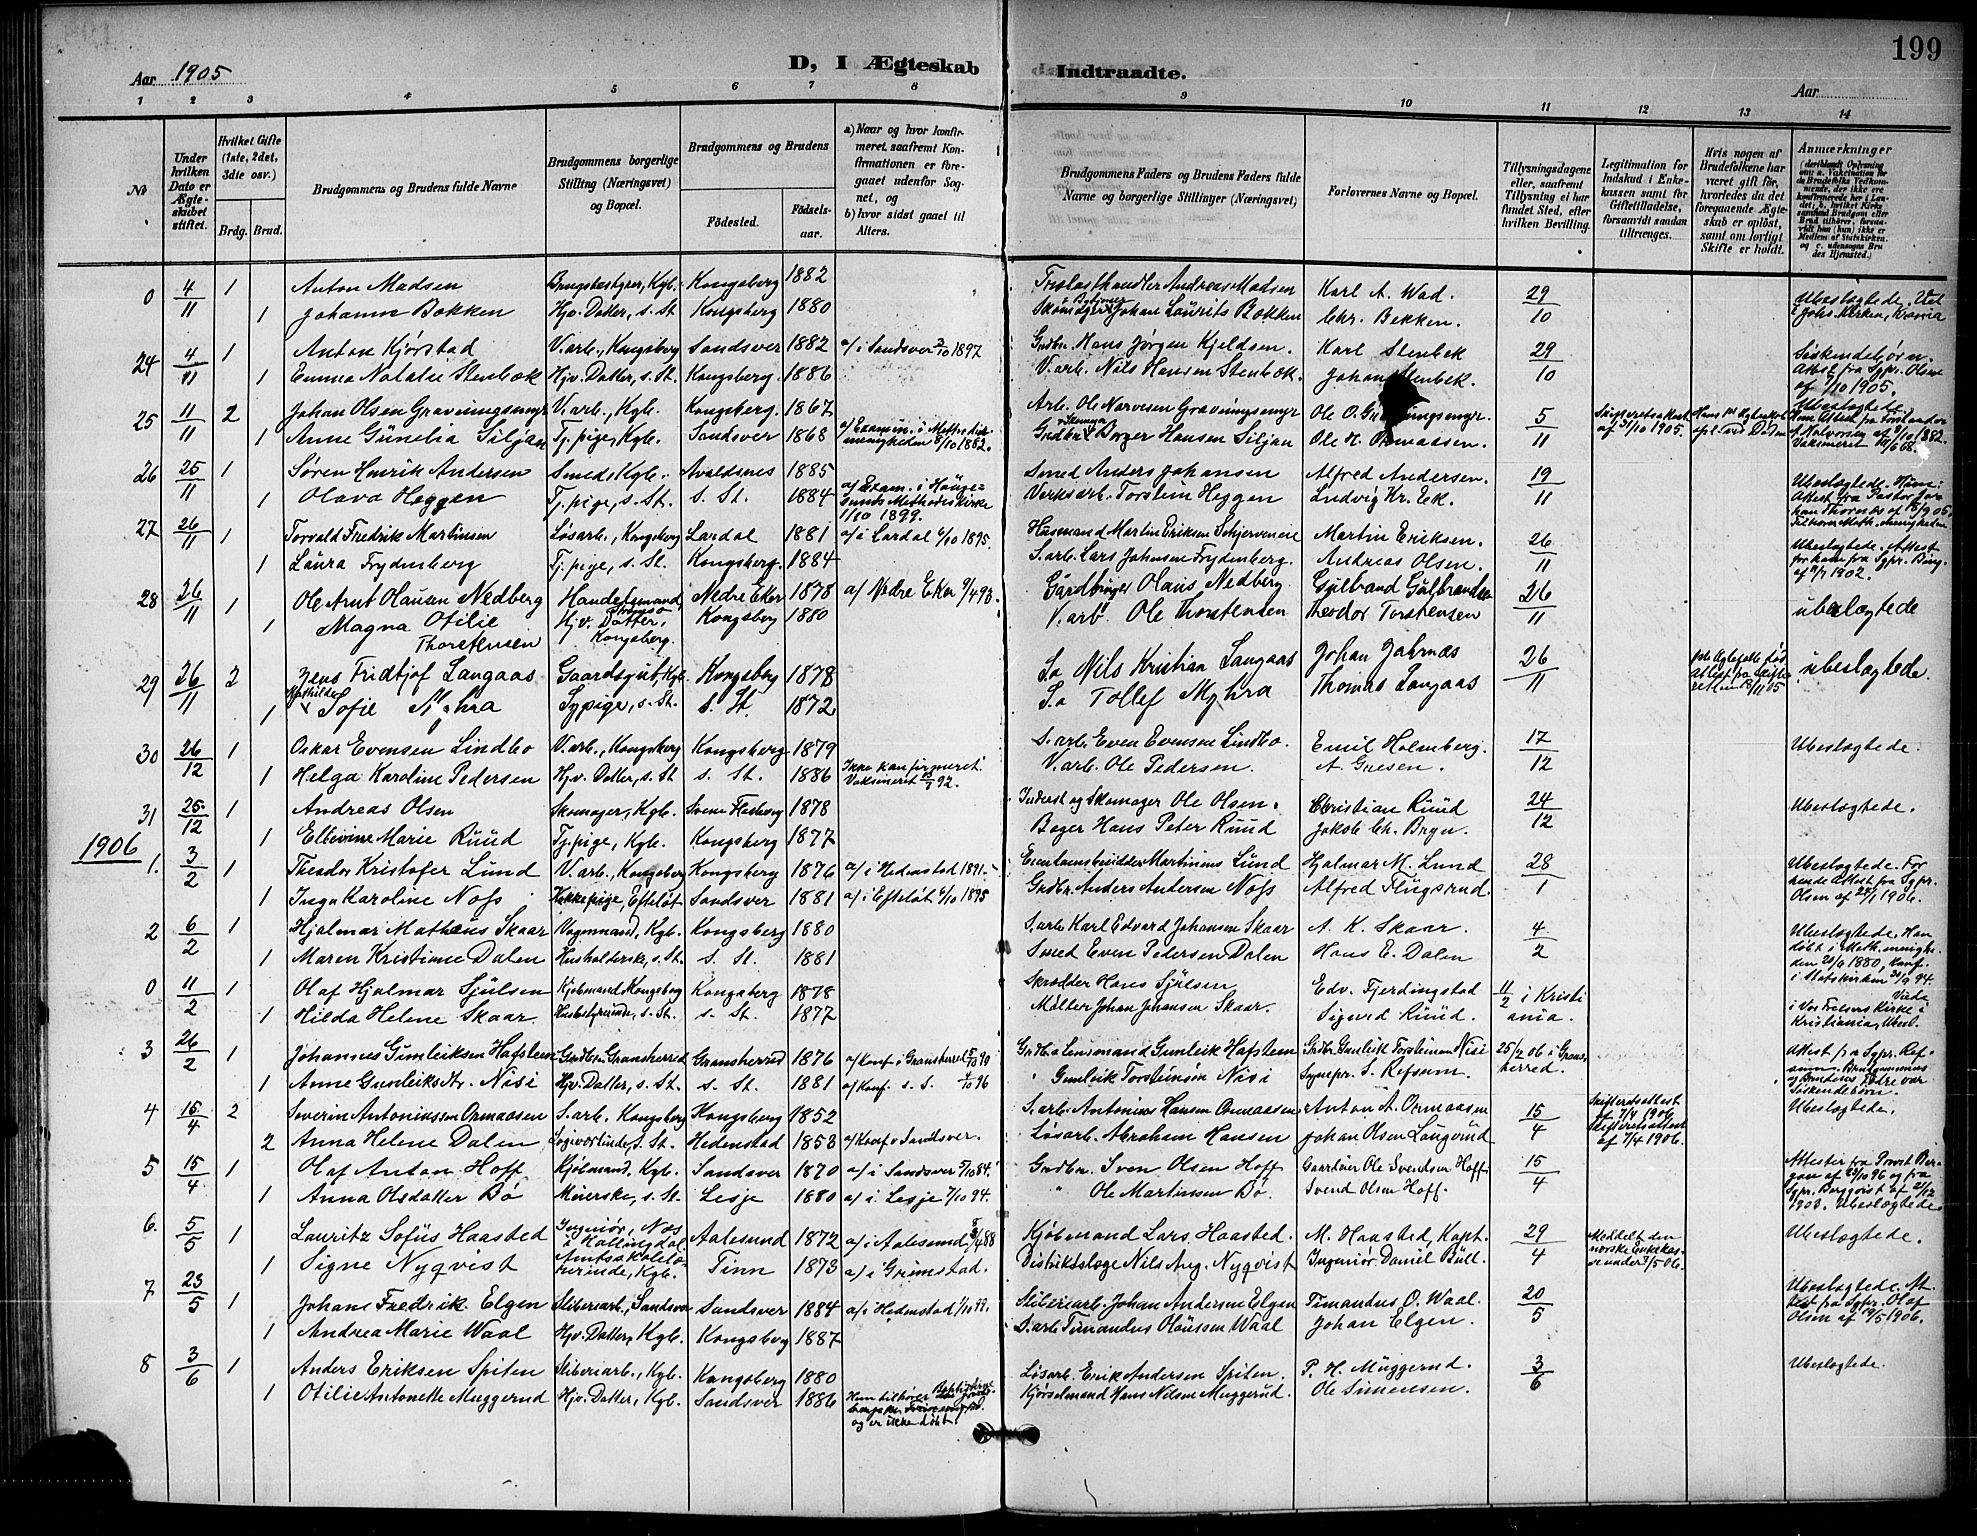 199
Aar 1905
D, I Ægteskab Indtraadte.
Aar
1 2 3 4 5 6 7 8 9 10 11 12 13 14
No
Under hvilken Dato er Ægteskabet stiftet.
Hvilket Gifte (1ste, 2det, 3die osv.)
Brdg. Brud.
Brudgommens og Brudens fulde Navne
Brudgommens borgerlige Stilling (Næringsvei) og Bopæl.
Brudgommens og Brudens
Födested.
Födselsaar.
a) Naar og hvor konfirmeret, saafremt Konfirmationen er foregaaet udenfor Sognet, og
b) hvor sidst gaaet til Alters.
Brudgommens Faders og Brudens Faders fulde Navne og borgerlige Stillinger (Næringsvei)
Forlovernes Navne og Bopæl.
Tillysningsdagene eller, saafremt Tillysning ei har fundet Sted, efter hvilken Bevilling.
Legitimation for Indskud i Enkekassen samt for Giftetilladelse, forsaavidt saadan tiltrænges.
Hvis nogen af Brudefolkene har været gift för, hvorledes da det foregaaende Ægteskab er oplöst, samt om lovligt Skifte er holdt.
Anmærkninger
0 4/11 1 Anton Madsen Kgb. Kongsberg 1882 Trælasthandler Andreas Madsen Karl A. Wad. 29/10 Ubeslægtede. Viet
1 Johanne Bakken Hjv. Datter, s. St. Kongsberg 1880 Johan Laurits Bakken Chr. Bekken. i Johs. Kirken, Krania
24 4/11 1 Anton Kjörstad V.arb., Kongsberg Sandsver 1882 a/ i Sandsver 2/10 1897 Grdbr. Hans Jörgen Kjeldsen. Karl Stenbek 29/10 Söskendebörn.
1 Emma Natalie Stenbæk Hjv. Datter, s. St. Kongsberg. 1886 V.arb. Nils Hansen Stenbæk. Johan Stenbek. Attest fra Sgpr. Olsen af 7/10 1905.
25 11/11 2 Johan Olsen Gravningsmyr V.arb., Kgb. Kongsberg. 1867 Arb. Ole Narvesen Gravningsmyr Ole O. 5/11 Skifteretsattest af 31/10 1905. Ubeslægtede.
1 Anne Günelia Siljan Tj. pige, Kgb. Sandsver 1868 a/ Examin. i Methodistmenigheden 8/10 1882. Grdbr. Borger Hansen Siljan Ole H. Ormaassen.
26 25/11 1 Sören Henrik Andersen Smed, Kgb. Avaldsnes 1885 Smed Anders Johansen Alfred Andersen. 19/11 Ubeslægtede.
1 Olava Heggen Tj. pige, s. St. s. St. 1884 a/ Exam. i Haugesunds Methodistkirke 1/10 1899. Verksarb. Torstein Heggen Ludvig Kr. Eek.
27 26/11 1 Torvald Fredrik Martinsen Lösarb., Kongsberg Lardal 1881 a/ i Lardal 6/10 1895. Husmand Martin Eriksen Martin Eriksen. 26/11 Ubeslægtede. Attest
1 Laura Frydenberg Tj. pige, s. St. Kongsberg. 1884 S.arb. Lars Johnsen Frydenberg. Andreas Olsen. for ham fra Sgpr. Bing af 11/7 1902.
28 26/11 1 Ole Arnt Olausen Nedberg Handelsmand, Strömsö Nedre Eker 1878 a/ Nedre Eker 9/4 93. Gardbruger Olaus Nedberg Gulbrand Gulbrandsen 26/11 ubeslægtede
1 Magna Otilie Thorstensen Hjv. Datter, Kongsberg. Kongsberg 1880 V.arb. Ole Thorstensen Theodor Torstensen
29 26/11 2 Jens Fridtjof Langaas Gaardsgut, Kgb. Kongsberg 1878 S.a Nils Kristian Langaas Johan Jahrnæs 26/11 ubeslægtede
1 Mathilde Sofie Myhra Sypige, s. St. s. St. 1872 S.a Tollef Myhra Thomas Langaas
30 26/12 1 Oskar Evensen Lindbo V.arb., Kongsberg Kongsberg 1879 S.arb. Even Evensen Lindbo. Emil Holmberg. 17/12 Ubeslægtede.
1 Helga Karoline Pedersen Hjv. Datter, s. St. s. St. 1886 Ikke konfirmeret. V.arb. Ole Pedersen.
31 25/12 1 Andreas Olsen Skomager, Kgb. Svene Flesberg 1878 Inderst og Skomager Ole Olsen. Christian Ruud 24/12 Ubeslægtede.
1 Ellevine Marie Ruud Tj. pige, Kgb. Kongsberg 1877 Bager Hans Peter Ruud Jakob Chr. Bryn.
1906
1. 3/2 1 Theodor Kristofer Lund V.arb., Kongsberg Kongsberg 1876 a/ i Hedenstad 1891. Martinius Lund Hjalmar M. Lund 28/1 Ubeslægtede. For
1 Inga Karoline Nofs Kokkepige, Eftelöt Sandsver 1881 a/ i Eftelöt 6/10 1895 Grdbr. Anders Andersen Nofs Alfred Flugsrud. hende Attest fra Sgpr. Olsen af 22/1 1906.
2 6/2 1 Hjalmar Mathæus Skaar Vognmand, Kgb. Kongsberg 1880 S.arb. Karl Edvard Johansen Skaar A. K. Skaar. 4/2 Ubeslægtede. Han
1 Maren Kristiane Dalen Husholderske, s. St. s. St. 1881 Smed Even Pedersen Dalen Hans E. Dalen döbt i Meth.menigheden 20/6 1880, konf. i Statskirken 30/9 94.
0 11/2 1 Olaf Hjalmar Sjulsen Kjöbmand, Kongsberg Kongsberg 1878 Skrædder Hans Sjulsen Edv. Fjerdingstad 11/2 i Kristiania. Viede
1 Hilda Helene Skaar Husbestyrerinde, s. St. s. St. 1877 Möller Johan Johansen Skaar. Sigurd Ruud. i Vor Frelsers Kirke i Kristiania, Ubesl.
3 26/2 1 Johannes Gunleiksen Hafsteen Grdbr. Gransherred Gransherred 1876 a/ Konf. i Gransherred 5/10 90 Grdbr. o Lensmand Gunleik Hafsteen Grdbr. Gunleik Torsteinsen Nisi 25/2 06 i Gransherred. Attest fra Sgpr. Refsum.
1 Anne Gunleiksdtr. Nisi Hjv. Datter, s. St. s. St. 1881 a/ Konf. s. S. 4/10 96 Gunleik Torsteinsön Nisi Sognepr. S. Refsum. Brudgommens og Brudens Fædre var Söskendebörn.
4 16/4 2 Severin Antoniussen Ormaasen S.arb. Kongsberg Kongsberg 1852 S.arb. Antonius Hansen Ormaasen Anton A. Ormaasen 15/4 Skifteretsattest af 7/4 1906 Ubeslægtede.
2 Anna Helene Dalen s. St. Hedenstad 1853 a/ Konf. Sandsver. Lösarb. Abraham Hansen Johan Olsen Langrud Skifteretsattest af 7/4 1906.
5 15/4 1 Olaf Anton Hoff Kjöbmand, Kgb. Sandsver 1870 a/ i Sandsver 5/10 84. Grdbr. Sven Olsen Hoff Gaardeier Ole Svendsen Hoff 15/4
1 Anna Olsdatter Bö Meierske, s. St. Lesje 1880 a/ i Lesje 7/10 94. " Ole Martinsen Bö. Svend Olsen Hoff. Ubeslægtede
6. 5/5 1 Lauritz Sofus Haasted Ingeniör, Næs i Hallingdal Aalesund 1872 a/ i Aalesund 88 Kjöbmand Lars Haasted. M. Haasted, Kapt. 29/4 Meddelt den norske Enkekasse under 3/5 06. Ubeslægtede.
1 Signe Nyqvist Kgb. Tinn 1873 a/ i Grimstad. Distriktslæge Nils Aug. Nyqvist Ingeniör Daniel Bull.
7 23/5 1 Johan Fredrik Elgen Sliberiarb., Sandsver Sandsver 1884 a/ i Hedenstad 1/10 99. Sliberiarb. Johan Andersen Elgen Timandus O. Waal. 20/5 Ubeslægtede. Attest fra Sgpr. Olaf Olsen af 19/5 1906.
1 Andrea Marie Waal Hjv. Datter, Kgb. Kongsberg 1887 S.arb. Timandus Olaussen Waal Johan Elgen.
8 3/6 1 Anders Eriksen Spiten Sliberiarb., Kgb. Kongsberg 1880 Lösarb. Erik Andersen Spiten. P. H. Muggerud. 3/6 Ubeslægtede.
1 Otilie Antonette Muggerud Hjv. Datter, Kgb. Sandsver 1886 Hun tilhörer og er ikke döbt. Kjörselmand Hans Nilsen Muggerud. Ole Simensen.